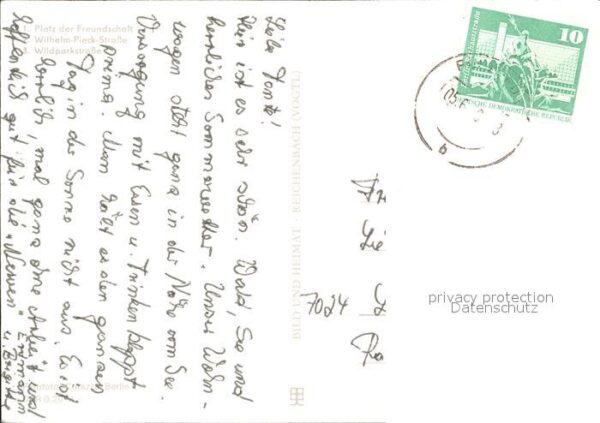 Platz der Freundschaft
Wilhelm-Pieck-Straße
Wildparkstraße
Liebe Tante!
Hier ist es sehr schön. Wald, See und
herrliches Sommerwetter. Unser Wohn-
wagen steht ganz in der Nähe vom See.
Versorgung mit Essen u. Trinken klappt
prima. Man hält es den ganzen
Tag in der Sonne nicht aus. Es ist
herrlich, mal ganz ohne Arbeit und
hoffentlich gut für die "Nerven"
u. Brigitte
BILD UND HEIMAT · REICHENBACH (VOGTL)
10
DEUTSCHE DEMOKRATISCHE REPUBLIK
b
7024
privacy protection
Datenschutz
Berlin